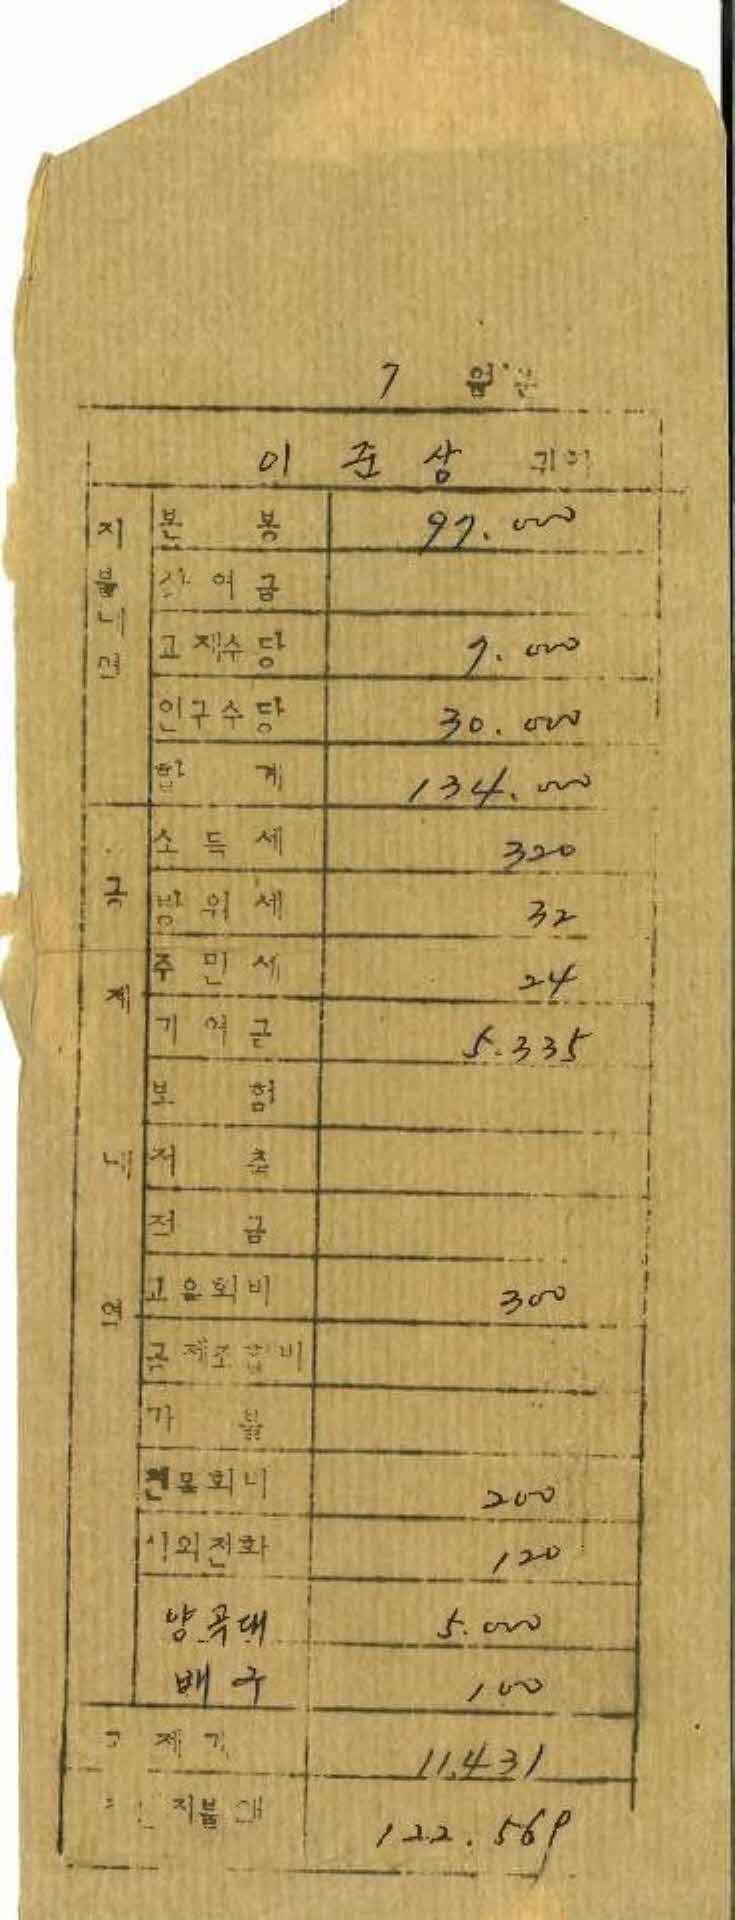 7 월 분
이 준 상 귀하
지불내역
본 봉 97.000
상여금
교재수당 7.000
인구수당 30.000
합 계 134.000
공제내역
소득세 320
방위세 32
주민세 24
기여금 5.335
보 험
저 축
전 금
교육회비 300
공제조합비
가 불
친목회비 200
시외전화 120
양곡대 5.000
배구 100
공제계 11,431
지불액 122.569